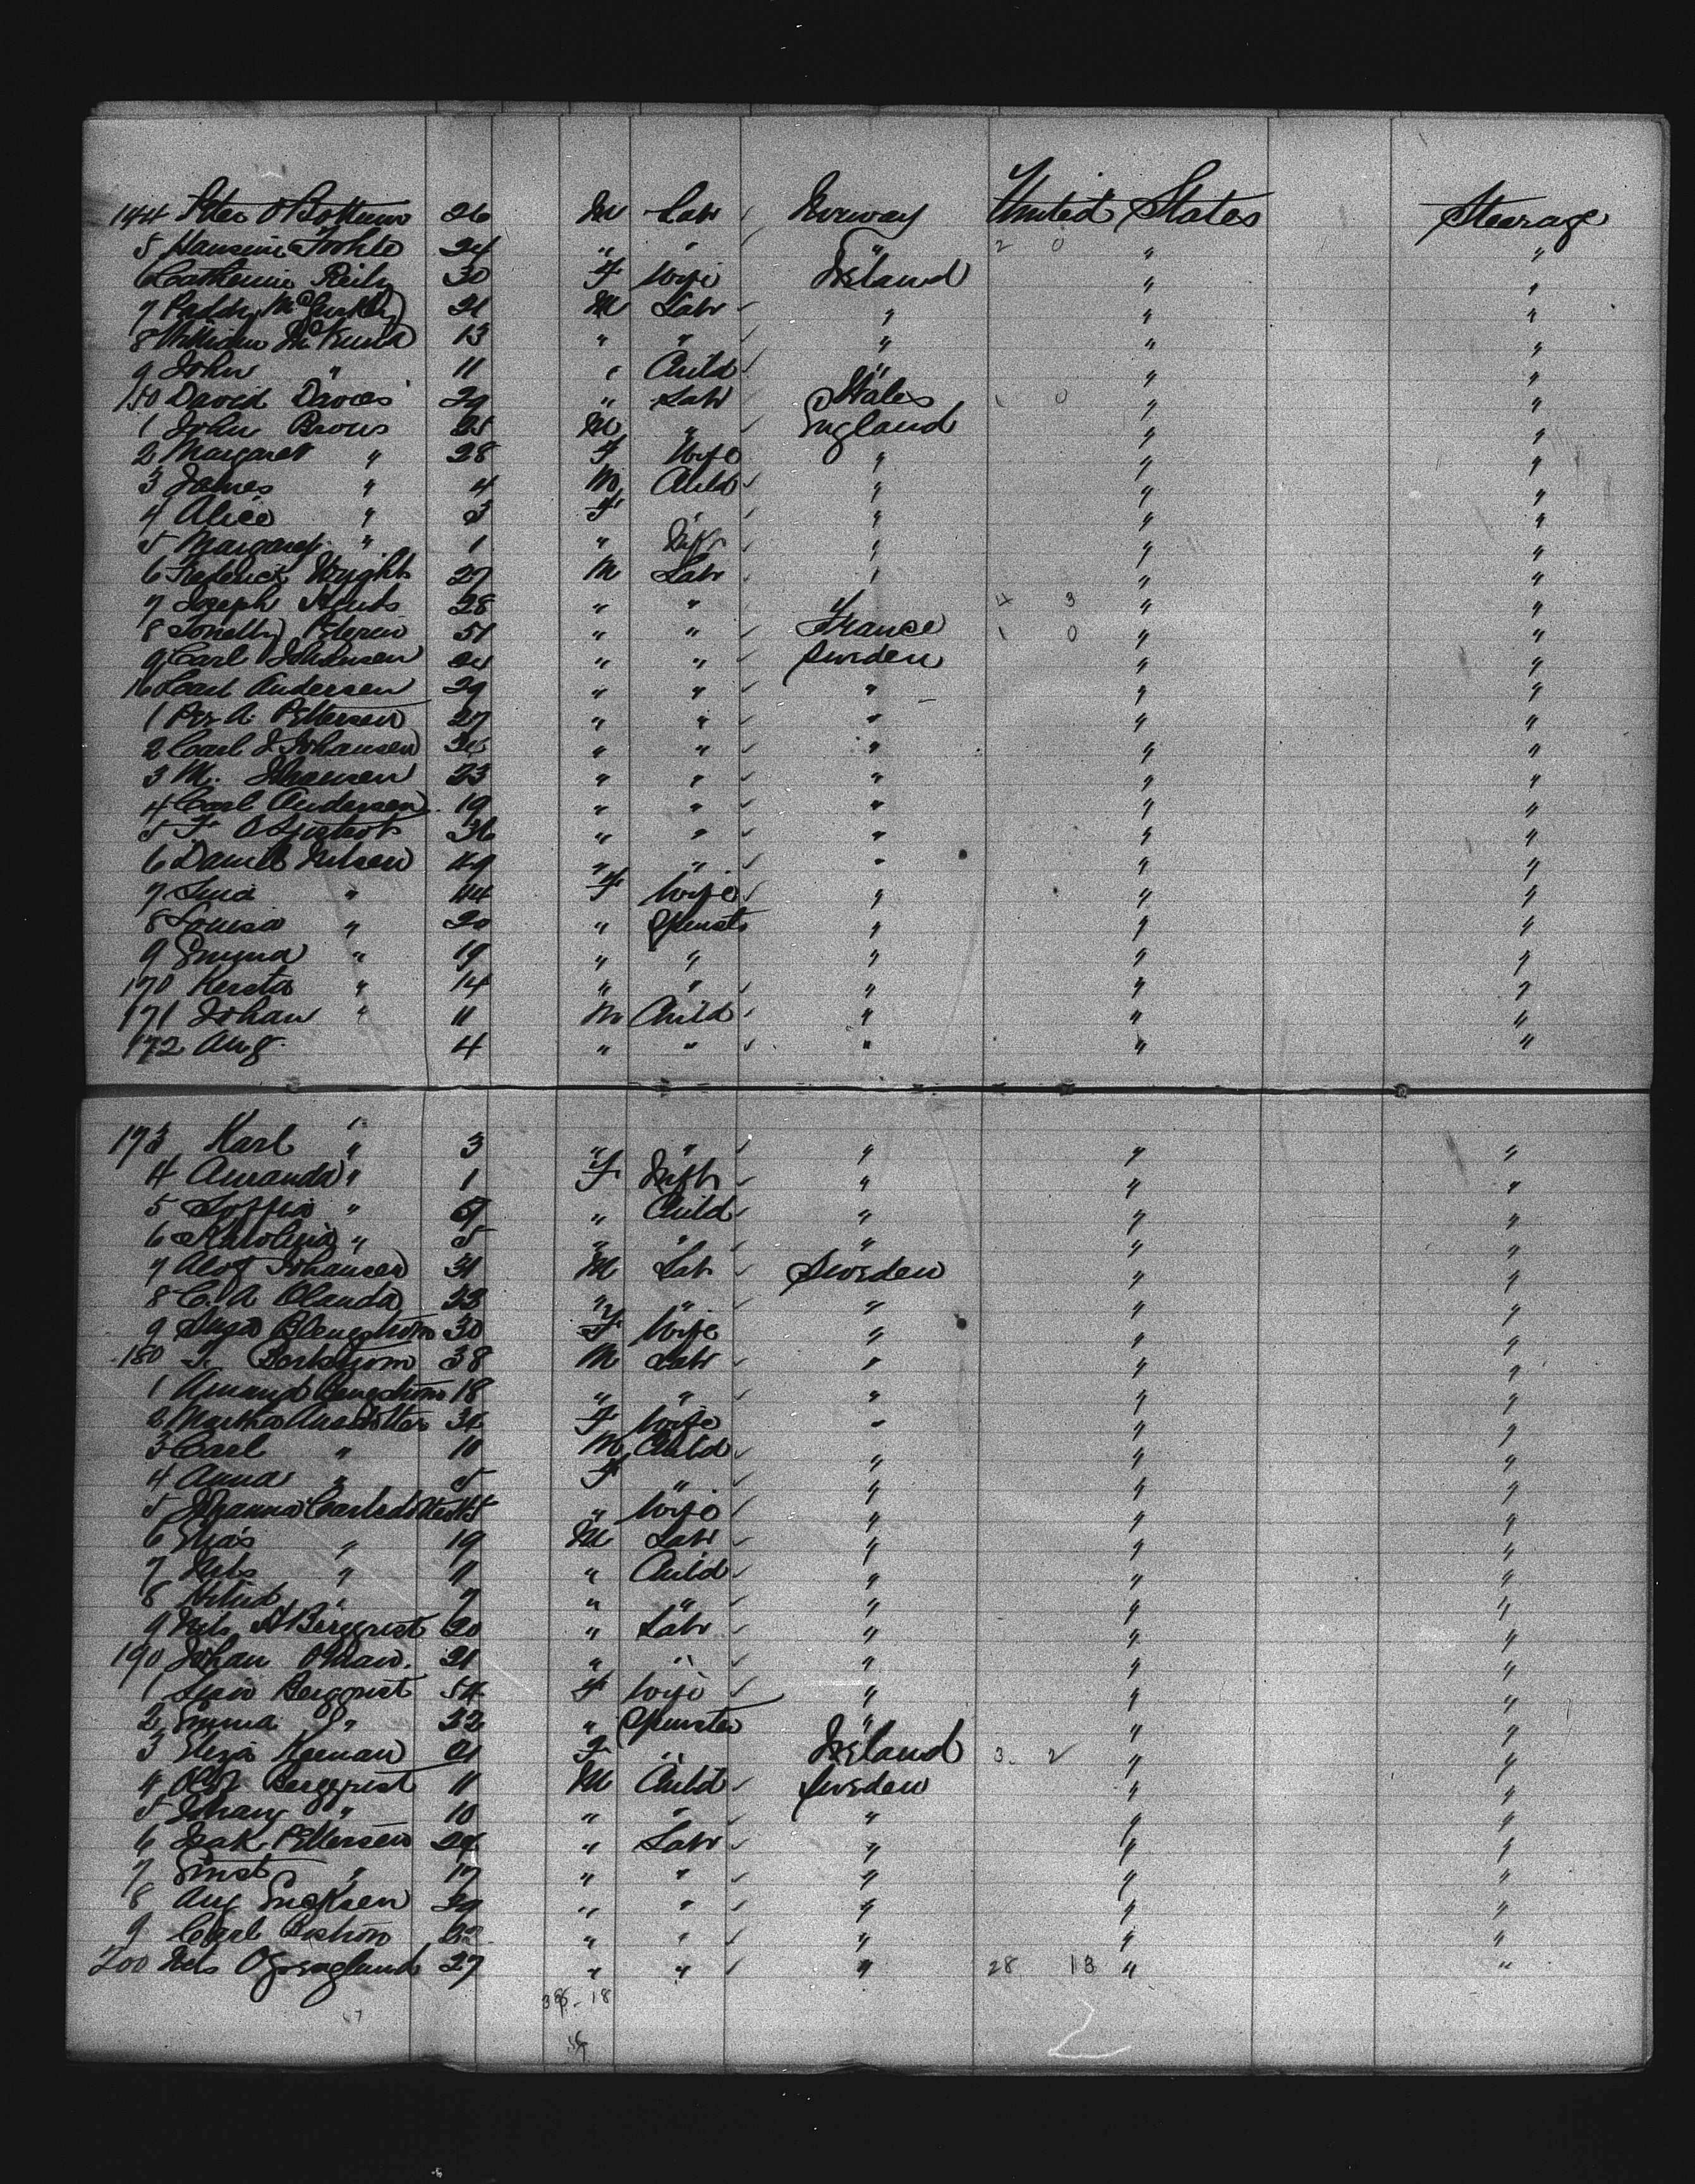 144 Peter O Bottum 26 M Labr Norway United States Steerage
5 Hansine 24 " " " 2 0 " "
6 Catherine Reily 30 F Wife Ireland " "
7 Paddy 21 M Labr " " "
8 William McKenna 13 " " " " "
9 John " 11 " Child " " "
150 David Davies 29 " Labr Wales 1 0 " "
1 John Brows 25 M " England " "
2 Margaret " 28 F Wife " " "
3 James " 4 M Child " " "
4 Alice " 3 F " " " "
5 Margaret " 1 " Inft " " "
6 Frederick Wright 27 M Labr " " "
7 Joseph 28 " " " 4 3 " "
8 51 " " France 1 0 " "
9 Carl Johansen 24 " " Sweden " "
160 Carl Andersen 29 " " " " "
1 Per A. Pettersen 27 " " " " "
2 Carl J Johansen 26 " " " " "
3 M. Johansen 23 " " " " "
4 Carl Andersen 19 " " " " "
5 F 36 " " " " "
6 Daniel Nelsen 49 " " " " "
7 " 44 F Wife " " "
8 Louisa " 20 " Spinst " " "
9 Emma " 19 " " " " "
170 Kersta " 14 " " " " "
171 Johan " 11 M Child " " "
172 Aug. 4 " " " " "
173 Karl " 3 " " " " "
4 Amanda " 1 F Inft " " "
5 Soffia " 9 " Child " " "
6 Karolina " 5 " " " " "
7 Alof Johansen 31 M Lab Sweden " "
8 C. A Olanda 33 " " " " "
9 Blengstrom 30 F Wife " " "
180 Borkstrom 38 M Labr " " "
1 Amand Bengstrom 18 " " " " "
2 Martha Anasdotter 31 F Wife " " "
3 Carl " 10 M Child " " "
4 Anna " 5 F " " " "
5 Johanna Carlsdotter 45 " Wife " " "
6 Elias " 19 M Labr " " "
7 Nels " 11 " Child " " "
8 " 7 " " " " "
9 Nils A Bergqvist 20 " Labr " " "
190 Johan Ohman. 21 " " " " "
1 Bergqvist 54 F Wife " " "
2 Emma " 22 " Spinster " " "
3 Eliza Keenan 21 F " Ireland 3 2 " "
4 Olof Bergqvist 11 M Child Sweden " "
5 Johan " 10 " " " " "
6 Isak Pettersen 24 " Labr " " "
7 Ernst " 17 " " " " "
8 Aug Ericksen 29 " " " " "
9 Carl 22 " " " " "
200 Nels 27 " " " 28 13 " "
18